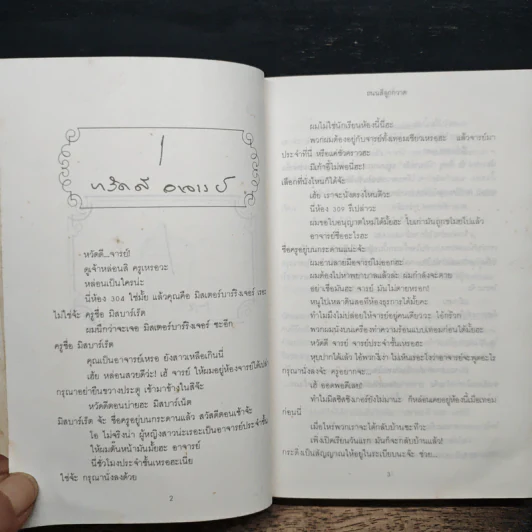 1
หวัดดี อาจารย์
หวัดดี...จารย์!
ดูเจ้าหล่อนสิ ครูเหรอวะ
หล่อนเป็นใครน่ะ
นี่ห้อง 304 ใช่มั้ย แล้วคุณคือ มิสเตอร์บาร์ริงเจอร์ เรอะ
ไม่ใช่จ้ะ ครูชื่อ มิสบาร์เร็ต
ผมนึกว่าจะเจอ มิสเตอร์บาร์ริงเจอร์ ซะอีก
ครูชื่อ มิสบาร์เร็ต
คุณเป็นอาจารย์เหรอ ยังสาวเหลือเกินนี่
เฮ้ย หล่อนสวยดีว่ะ! เฮ้ จารย์ ให้ผมอยู่ห้องจารย์ได้เปล่า
กรุณาอย่ายืนขวางประตู เข้ามาข้างในสิจ๊ะ
หวัดดีตอนบ่ายฮะ มิสบาร์เน็ต
มิสบาร์เร็ต จ้ะ ชื่อครูอยู่บนกระดานแล้ว สวัสดีตอนเช้าจ้ะ
โอ ไม่จริงน่า ผู้หญิงสาวน่ะเรอะเป็นอาจารย์ประจำชั้น
ให้ผมตื่นหน้ามันมั้ยฮะ อาจารย์
นี่ชั่วโมงประจำชั้นเหรอฮะเนี่ย
ใช่จ้ะ กรุณานั่งลงด้วย
2
ถนนสีลูกกวาด
ผมไม่ใช่นักเรียนห้องนี้นี่ฮะ
พวกผมต้องอยู่กับจารย์ทั้งเทอมเชียวเหรอฮะ แล้วจารย์มา
ประจำที่นี่ หรือแค่ชั่วคราวฮะ
มีเก้าอี้ไม่พอนี่ฮะ!
เลือกที่นั่งไหนก็ได้จ้ะ
เฮ้ย เราจะนั่งตรงไหนดีวะ
นี่ห้อง 309 รึเปล่าวะ
อาจารย์ชื่ออะไรฮะ
ชื่อครูอยู่บนกระดานแน่ะจ้ะ
ผมอ่านลายมือจารย์ไม่ออกฮะ
ผมต้องไปหาพยาบาลแล้วล่ะ ผมกำลังจะตาย
อย่าเชื่อมันฮะ จารย์ มันไม่ตายหรอก!
หนูไปเหลาดินสอที่ห้องธุรการได้มั้ยคะ
หวัดดี จารย์ จารย์ประจำชั้นเหรอฮะ
กรุณานั่งลงจ้ะ ครูอยากจะ...
เฮ้ ออดพอดีเลย!
ก่อนนี่
เมื่อไหร่พวกเราจะได้กลับบ้านซะทีวะ
เพิ่งเปิดเรียนวันแรก มันก็จะกลับบ้านแล้ว!
กระดิ่งเป็นสัญญาณให้อยู่ในระเบียบนะจ๊ะ ช่วย...
3